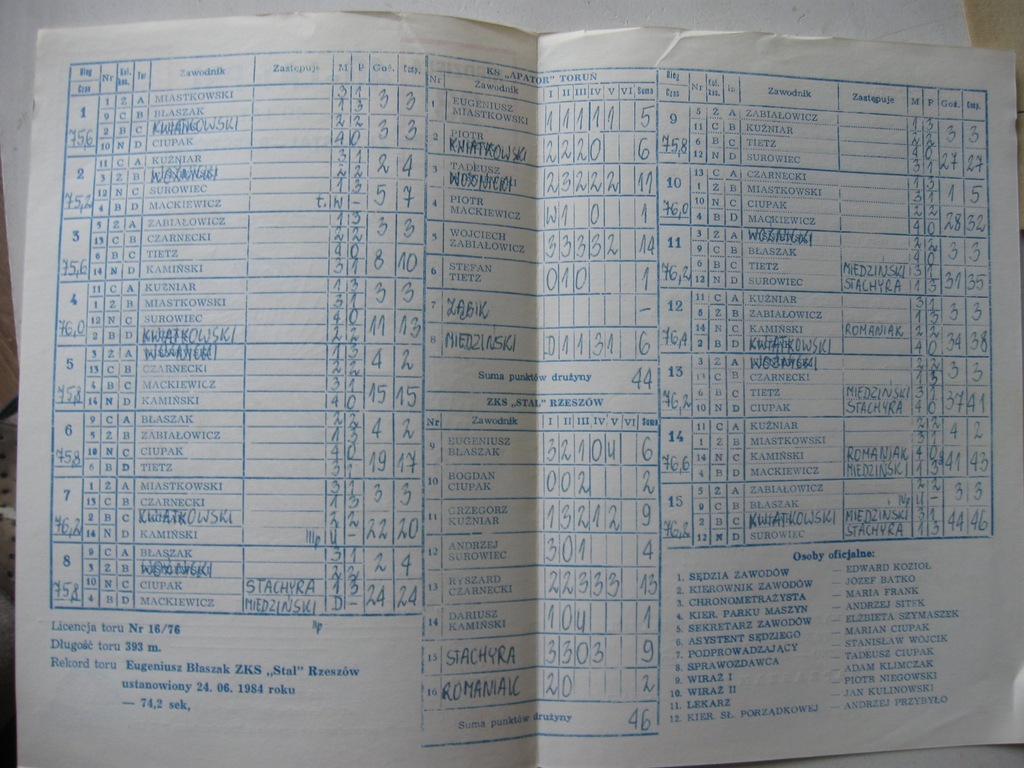 Bieg Czas Nr Kol. kas. Tor Zawodnik Zastępuje M P Goś. Gosp.
1 1 Ż A MIASTKOWSKI 3 1 3 3
9 C B BŁASZAK 1 3
2 B C KWIATKOWSKI 2 2 3 3
75,6 10 N D CIUPAK 4 0
2 11 C A KUŹNIAR 3 1 2 4
3 Ż B WOŹNICKI 2 2
12 N C SUROWIEC 1 3 5 7
75,2 4 B D MACKIEWICZ t. W -
3 5 Ż A ZABIAŁOWICZ 1 3 3 3
13 C B CZARNECKI 2 2
6 B C TIETZ 4 0 8 10
75,6 14 N D KAMIŃSKI 3 1
4 11 C A KUŹNIAR 3 3
1 Ż B MIASTKOWSKI 3 1
12 N C SUROWIEC 4 0 11 13
76,0 2 B D KWIATKOWSKI 2 2
5 3 Ż A WOŹNICKI 1 3 4 2
13 C B CZARNECKI 2 2
4 B C MACKIEWICZ 3 1 15 15
75,8 14 N D KAMIŃSKI 4 0
6 9 C A BŁASZAK 2 2 4 2
5 Ż B ZABIAŁOWICZ 1 3
10 N C CIUPAK 4 0 19 17
75,8 6 B D TIETZ 3 1
7 1 Ż A MIASTKOWSKI 3 1 3 3
13 C B CZARNECKI 1 3
2 B C KWIATKOWSKI 2 2 22 20
76,2 14 N D KAMIŃSKI U -
8 9 C A BŁASZAK 3 1 2 4
3 Ż B WOŹNICKI 2 2
10 N C CIUPAK STACHYRA 1 3 24 24
75,8 4 B D MACKIEWICZ MIEDZIŃSKI D -
Licencja toru Nr 16/76
Długość toru 393 m.
Rekord toru Eugeniusz Błaszak ZKS „Stal” Rzeszów
ustanowiony 24. 06. 1984 roku
— 74,2 sek,
KS „APATOR” TORUŃ
Nr Zawodnik I II III IV V VI Suma
1 EUGENIUSZ MIASTKOWSKI 1 1 1 1 1 5
2 PIOTR KWIATKOWSKI 2 2 2 0 6
3 TADEUSZ WOŹNICKI 2 3 2 2 2 11
4 PIOTR MACKIEWICZ W 1 0 1
5 WOJCIECH ZABIAŁOWICZ 3 3 3 3 2 14
6 STEFAN TIETZ 0 1 0 1
7 ŻABIK -
8 MIEDZIŃSKI D 1 1 3 1 6
Suma punktów drużyny 44
ZKS „STAL” RZESZÓW
Nr Zawodnik I II III IV V VI Suma
9 EUGENIUSZ BŁASZAK 3 2 1 0 U 6
10 BOGDAN CIUPAK 0 0 2 2
11 GRZEGORZ KUŹNIAR 1 3 2 1 2 9
12 ANDRZEJ SUROWIEC 3 0 1 4
13 RYSZARD CZARNECKI 2 2 3 3 3 13
14 DARIUSZ KAMIŃSKI 1 0 U 1
15 STACHYRA 3 3 0 3 9
16 ROMANIAK 2 0 2
Suma punktów drużyny 46
Bieg Czas Nr Kol. kas. Zawodnik Zastępuje M P Goś. Gosp.
9 5 Ż A ZABIAŁOWICZ 1 3
11 C B KUŹNIAR 2 2 3 3
6 B C TIETZ 4 0
75,8 12 N D SUROWIEC 3 1 27 27
10 13 C A CZARNECKI 1 3 1 5
1 Ż B MIASTKOWSKI 3 1
10 N C CIUPAK 2 2 28 32
76,0 4 B D MACKIEWICZ 4 0
11 3 Ż A WOŹNICKI 2 2 3 3
9 C B BŁASZAK 4 0
6 B C TIETZ MIEDZIŃSKI 3 1 31 35
76,2 12 N D SUROWIEC STACHYRA 1 3
12 11 C A KUŹNIAR 3 1 3 3
5 Ż B ZABIAŁOWICZ 1 3
14 N C KAMIŃSKI ROMANIAK 2 2 34 38
76,4 2 B D KWIATKOWSKI 4 0
13 3 Ż A WOŹNICKI 2 2 3 3
13 C B CZARNECKI 1 3
6 B C TIETZ MIEDZIŃSKI 3 1 37 41
76,2 10 N D CIUPAK STACHYRA 4 0
14 11 C A KUŹNIAR 2 2 4 2
1 Ż B MIASTKOWSKI 3 1
14 N C KAMIŃSKI ROMANIAK 4 0 41 43
76,6 4 B D MACKIEWICZ MIEDZIŃSKI 1 3
15 5 Ż A ZABIAŁOWICZ 2 2 3 3
9 C B BŁASZAK U -
2 B C KWIATKOWSKI MIEDZIŃSKI 3 1 44 46
76,2 12 N D SUROWIEC STACHYRA 1 3
Osoby oficjalne:
1. SĘDZIA ZAWODÓW — EDWARD KOZIOŁ
2. KIEROWNIK ZAWODÓW — JÓZEF BATKO
3. CHRONOMETRAŻYSTA — MARIA FRANK
4. KIER. PARKU MASZYN — ANDRZEJ SITEK
5. SEKRETARZ ZAWODÓW — ELŻBIETA SZYMASZEK
6. ASYSTENT SĘDZIEGO — MARIAN CIUPAK
7. PODPROWADZAJĄCY — STANISŁAW WÓJCIK
8. SPRAWOZDAWCA — TADEUSZ CIUPAK
9. WIRAŻ I — ADAM KLIMCZAK
10. WIRAŻ II — PIOTR NIEGOWSKI
11. LEKARZ — JAN KULINOWSKI
12. KIER. SŁ. PORZĄDKOWEJ — ANDRZEJ PRZYBYŁO